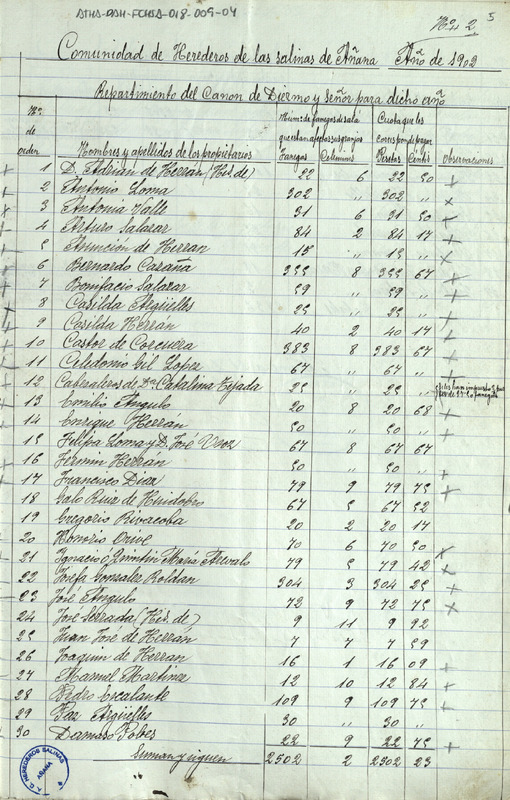 ATHA-DAH-FCHSA-018-009-04
Nº 2
5
Comunidad de Herederos de las salinas de Añana Año de 1902
Repartimiento del Canon de Diezmo y señor para dicho año
Nº de orden Nombres y apellidos de los propietarios Num. de fanegas de sal a que estan afectas sus granjas Fanegas Celemines Cuota que les corresponde pagar Pesetas Cents Observaciones
1 D. Adrian de Herran (Hs. de) 22 6 22 50 +
2 Antonio Loma 302 " 302 " x
3 Antonia Valle 31 6 31 50 +
4 Arturo Salazar 84 2 84 17 +
5 Asuncion de Herran 15 " 15 " x
6 Bernardo Casaña 355 8 355 67 +
7 Bonifacio Salazar 59 " 59 " +
8 Casilda Argüelles 25 " 25 " +
9 Casilda Herran 40 2 40 17 +
10 Castor de Corcuera 383 8 383 67 +
11 Celedonio Gil Lopez 67 " 67 " +
12 Cabraleros de Dª Catalina Tejada 25 " 25 "
13 Emilio Angulo 20 8 20 68 +
14 Enrique Herrán 50 " 50 " +
15 Felipa Loma y D. José 67 8 67 67
16 Fermin Herrán 50 " 50 "
17 Francisco Diaz 79 9 79 75 +
18 Galo Ruiz de 67 5 67 52
19 Gregorio Rivacoba 20 2 20 17
20 Honorio Orive 70 6 70 50 x
21 Ignacio y Quintin Maria Arevalo 79 5 79 42 x
22 Josefa Gonzalez Roldan 304 3 304 25 +
23 José Angulo 72 9 72 75 x
24 José Serrada (Hs. de) 9 11 9 92
25 Juan José de Herran 7 7 7 59
26 Joaquin de Herran 16 1 16 09 +
27 Manuel Martinez 12 10 12 84 +
28 Pedro Escalante 109 9 109 75 +
29 Paz Argüelles 30 " 30 "
30 Damaso Pobes 22 9 22 75 +
Suman y siguen 2502 2 2502 23
HEREDEROS SALINAS
AÑANA